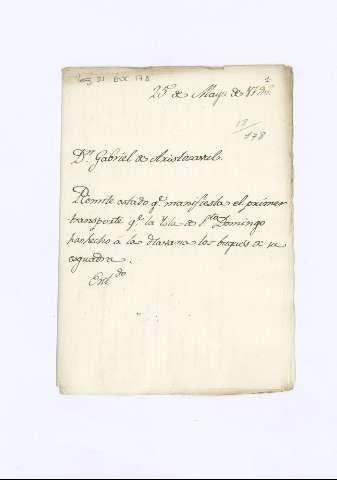 1
25 de Mayo de 179
19/178
Dn. Gabriel de Aristizaval.
Remite estado qe. manifiesta el primer
transporte qe. la Isla de Sto. Domingo
han hecho â la Havana los buques de su
esquadra.